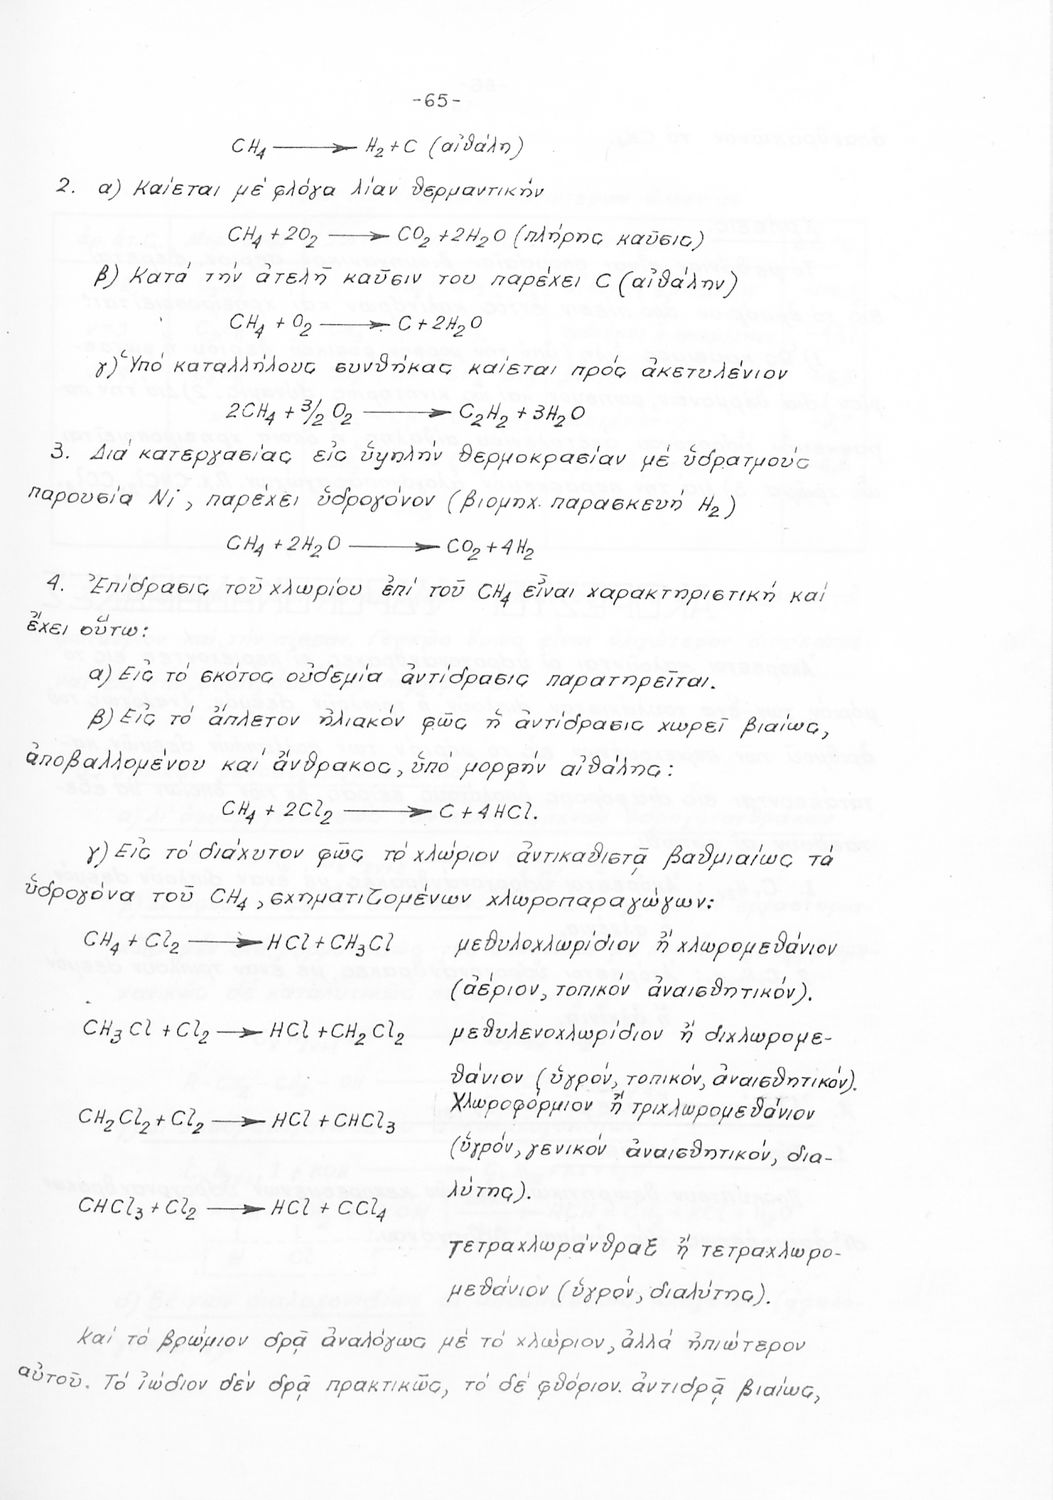 -65-
CH4 ⟶ H2 + C (αἰθάλη)
2. α) Καίεται μέ φλόγα λίαν θερμαντικήν
CH4 + 2O2 ⟶ CO2 + 2H2O (πλήρης καῦσις)
β) Κατά τήν ἀτελῆ καῦσιν του παρέχει C (αἰθάλην)
CH4 + O2 ⟶ C + 2H2O
γ) Ὑπό καταλλήλους συνθήκας καίεται πρός ἀκετυλένιον
2CH4 + 3/2 O2 ⟶ C2H2 + 3H2O
3. Διά κατεργασίας εἰς ὑψηλήν θερμοκρασίαν μέ ὑδρατμούς
παρουσία Ni, παρέχει ὑδρογόνον (βιομηχ. παρασκευή H2)
CH4 + 2H2O ⟶ CO2 + 4H2
4. Ἐπίδρασις τοῦ χλωρίου ἐπί τοῦ CH4 εἶναι χαρακτηριστική καί
ἔχει οὕτω:
α) Εἰς τό σκότος οὐδεμία ἀντίδρασις παρατηρεῖται.
β) Εἰς τό ἄπλετον ἡλιακόν φῶς ἡ ἀντίδρασις χωρεῖ βιαίως,
ἀποβαλλομένου καί ἄνθρακος, ὑπό μορφήν αἰθάλης:
CH4 + 2Cl2 ⟶ C + 4HCl.
γ) Εἰς τό διάχυτον φῶς τό χλώριον ἀντικαθιστᾷ βαθμιαίως τά
ὑδρογόνα τοῦ CH4, σχηματιζομένων χλωροπαραγώγων:
CH4 + Cl2 ⟶ HCl + CH3Cl μεθυλοχλωρίδιον ἤ χλωρομεθάνιον
(ἀέριον, τοπικόν ἀναισθητικόν).
CH3Cl + Cl2 ⟶ HCl + CH2Cl2 μεθυλενοχλωρίδιον ἤ διχλωρομε-
θάνιον (ὑγρόν, τοπικόν, ἀναισθητικόν).
Χλωροφόρμιον ἤ τριχλωρομεθάνιον
CH2Cl2 + Cl2 ⟶ HCl + CHCl3
(ὑγρόν, γενικόν ἀναισθητικόν, δια-
λύτης).
CHCl3 + Cl2 ⟶ HCl + CCl4
τετραχλωράνθραξ ἤ τετραχλωρο-
μεθάνιον (ὑγρόν, διαλύτης).
Καί τό βρώμιον δρᾷ ἀναλόγως μέ τό χλώριον, ἀλλά ἠπιώτερον
αὐτοῦ. Τό ἰώδιον δέν δρᾷ πρακτικῶς, τό δέ φθόριον. ἀντιδρᾷ βιαίως,